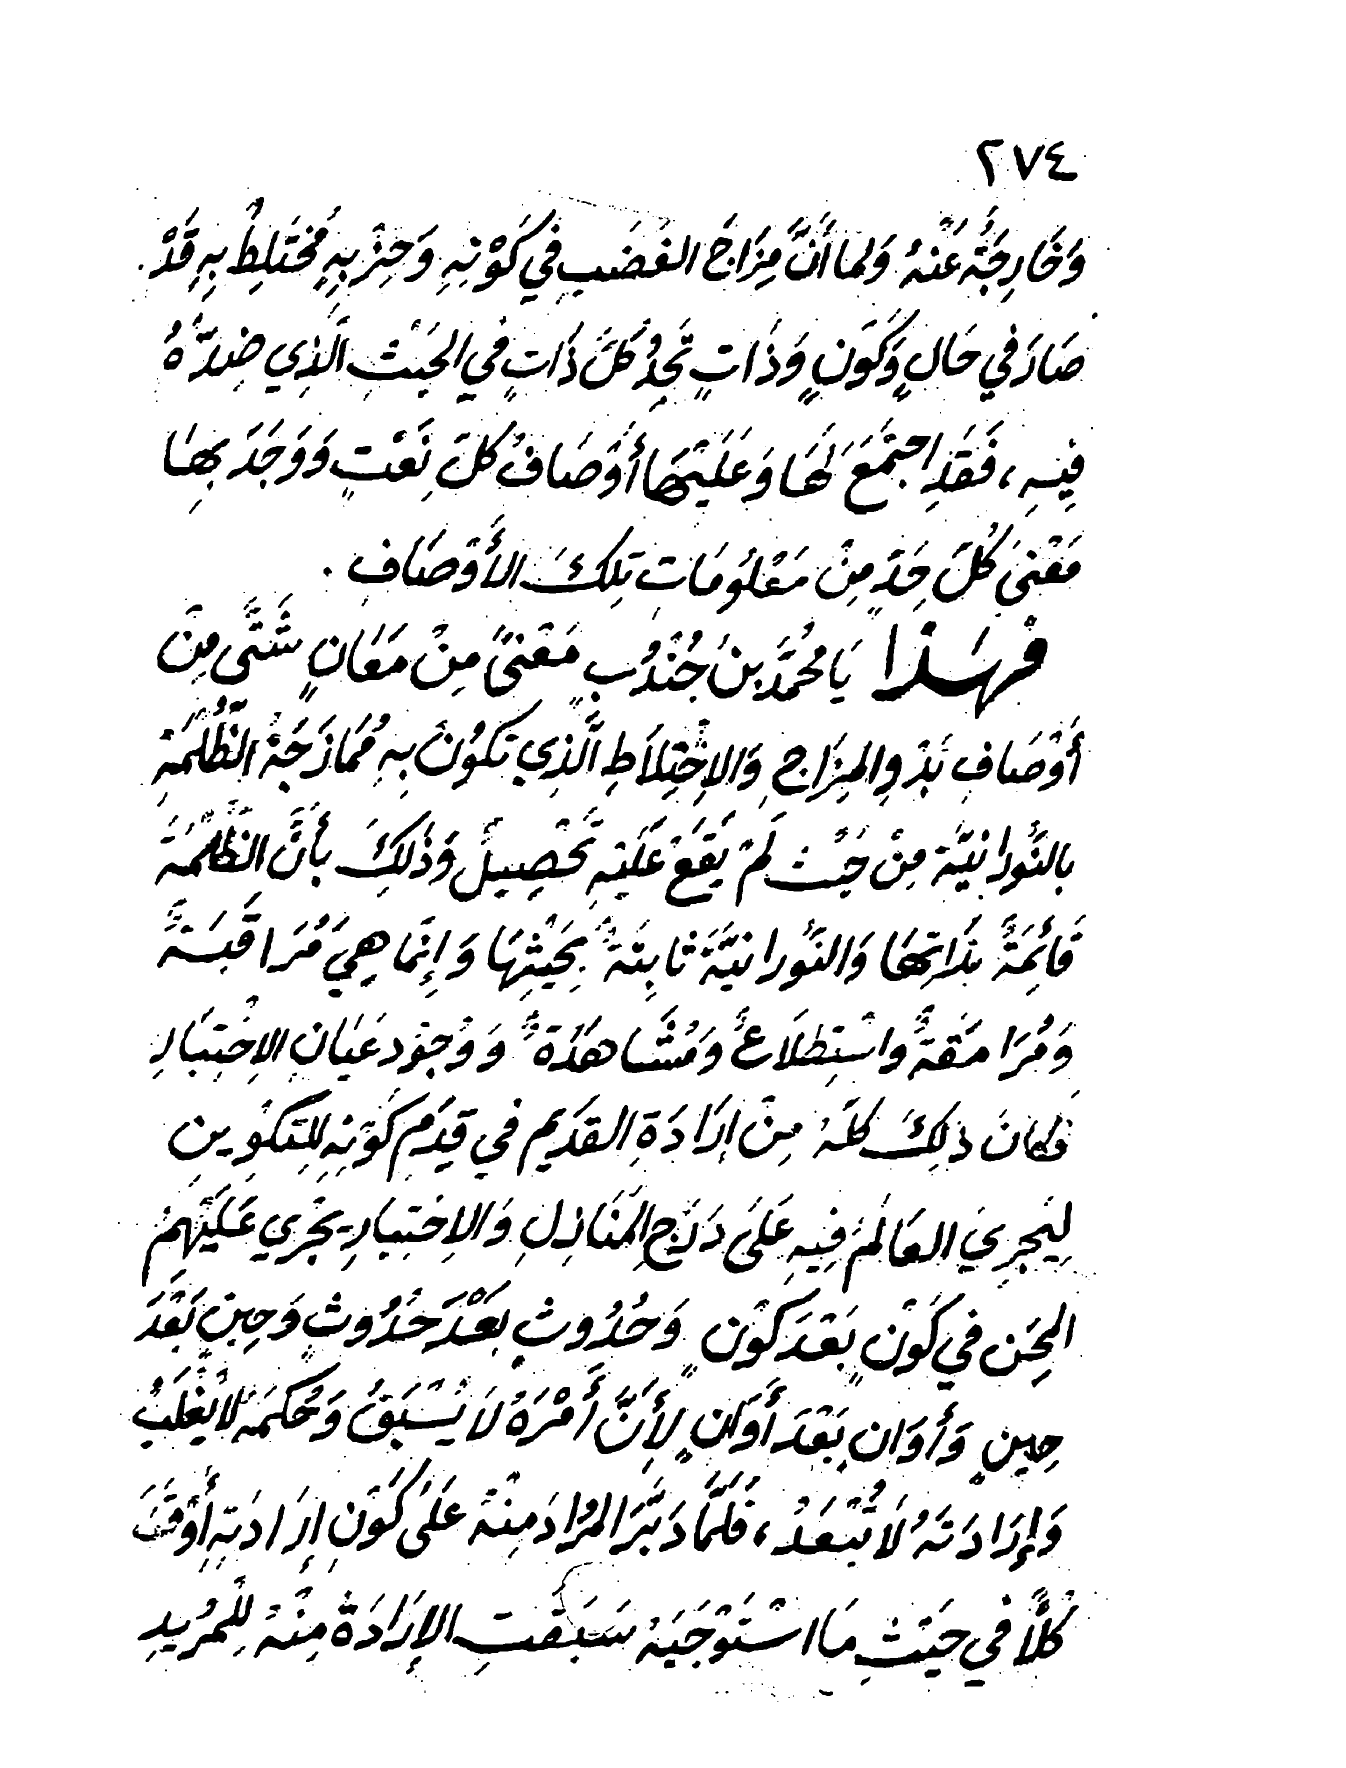 ٢٧٤
وَخَارِجَةٌ عَنْهُ وَلما أَنَّ مِزَاجَ الغَضَبِ في كَوْنِهِ وَحِزْبِهِ مُخْتَلِطٌ بِهِ قَدْ
صَارَ في حَالٍ وَكَونٍ وَذَاتٍ تَجِدُ كُلَّ ذَاتٍ في الحَيْثِ الَّذِي ضِدُّهُ
فِيهِ، فَقَدِ اجتَمَعَ لَهَا وَعَلَيْهَا أَوْصَافُ كُلِّ نَعْتٍ وَوَجَدَ بِهَا
مَعْنَى كُلِّ حَدٍّ مِنْ مَعْلُومَاتِ تِلكَ الأَوْصَافِ .
فَهَذَا يَا مُحَمَّدُ بنَ جُنْدُبٍ مَعْنىً مِنْ مَعَانٍ شَتَّى مِنْ
أَوْصَافِ بَدْوِ المِزَاجِ وَالاِخْتِلاَطِ الَّذِي تَكُونُ بِهِ مُمَازَجَةُ الظُّلْمَةِ
بالنُّورَانِيَّةِ مِنْ حَيْث لَمْ يَقَعْ عَلَيْهِ تَحْصِيلٌ وَذَلِكَ بأَنَّ الظُّلْمَةَ
قَائِمَةٌ بذَاتِهَا وَالنُّورانيَّةَ ثابِتَةٌ بحَيْثِهَا وَإِنَّما هِيَ مُرَاقَبَةٌ
وَمُرَامَقَةٌ واسْتِطلاَعٌ وَمُشَاهَدَةٌ وَوُجُودُ عَيَانِ الاِخْتِبَارِ
فكانَ ذلِكَ كلّهُ مِنْ إرَادَةِ القَدِيمِ في قِدَمِ كَوْنِهِ لِلتكْوِينِ
لِيَجرِيَ العَالَمُ فِيهِ عَلَى دَرَجِ المَنَازِلِ وَالاِخْتِبَارِ يَجْرِي عَلَيْهِمْ
المِحَنِ في كَوْنٍ بَعْدَ كَوْنٍ وَحُدُوثٍ بَعْدَ حُدُوثٍ وَحِينٍ بَعْدَ
حِينٍ وَأَوَانٍ بَعْدَ أَوَانٍ لأَنَّ أَمْرَهُ لاَ يُسْبَقُ وَحُكمَهُ لا يُغْلَبُ
وَإِرَادَتَهُ لاَ تُبْعَدُ، فَلَمَّا دَبَّرَ المُرَادَ مِنْهُ عَلَى كَوْنِ إرَادَتِهِ أَوْقَفَ
كُلاًّ في حَيْثِ مَا اسْتَوْجَبَهُ سَبَقَتِ الإرَادَةُ مِنْهُ لِلْمُرِيدِ